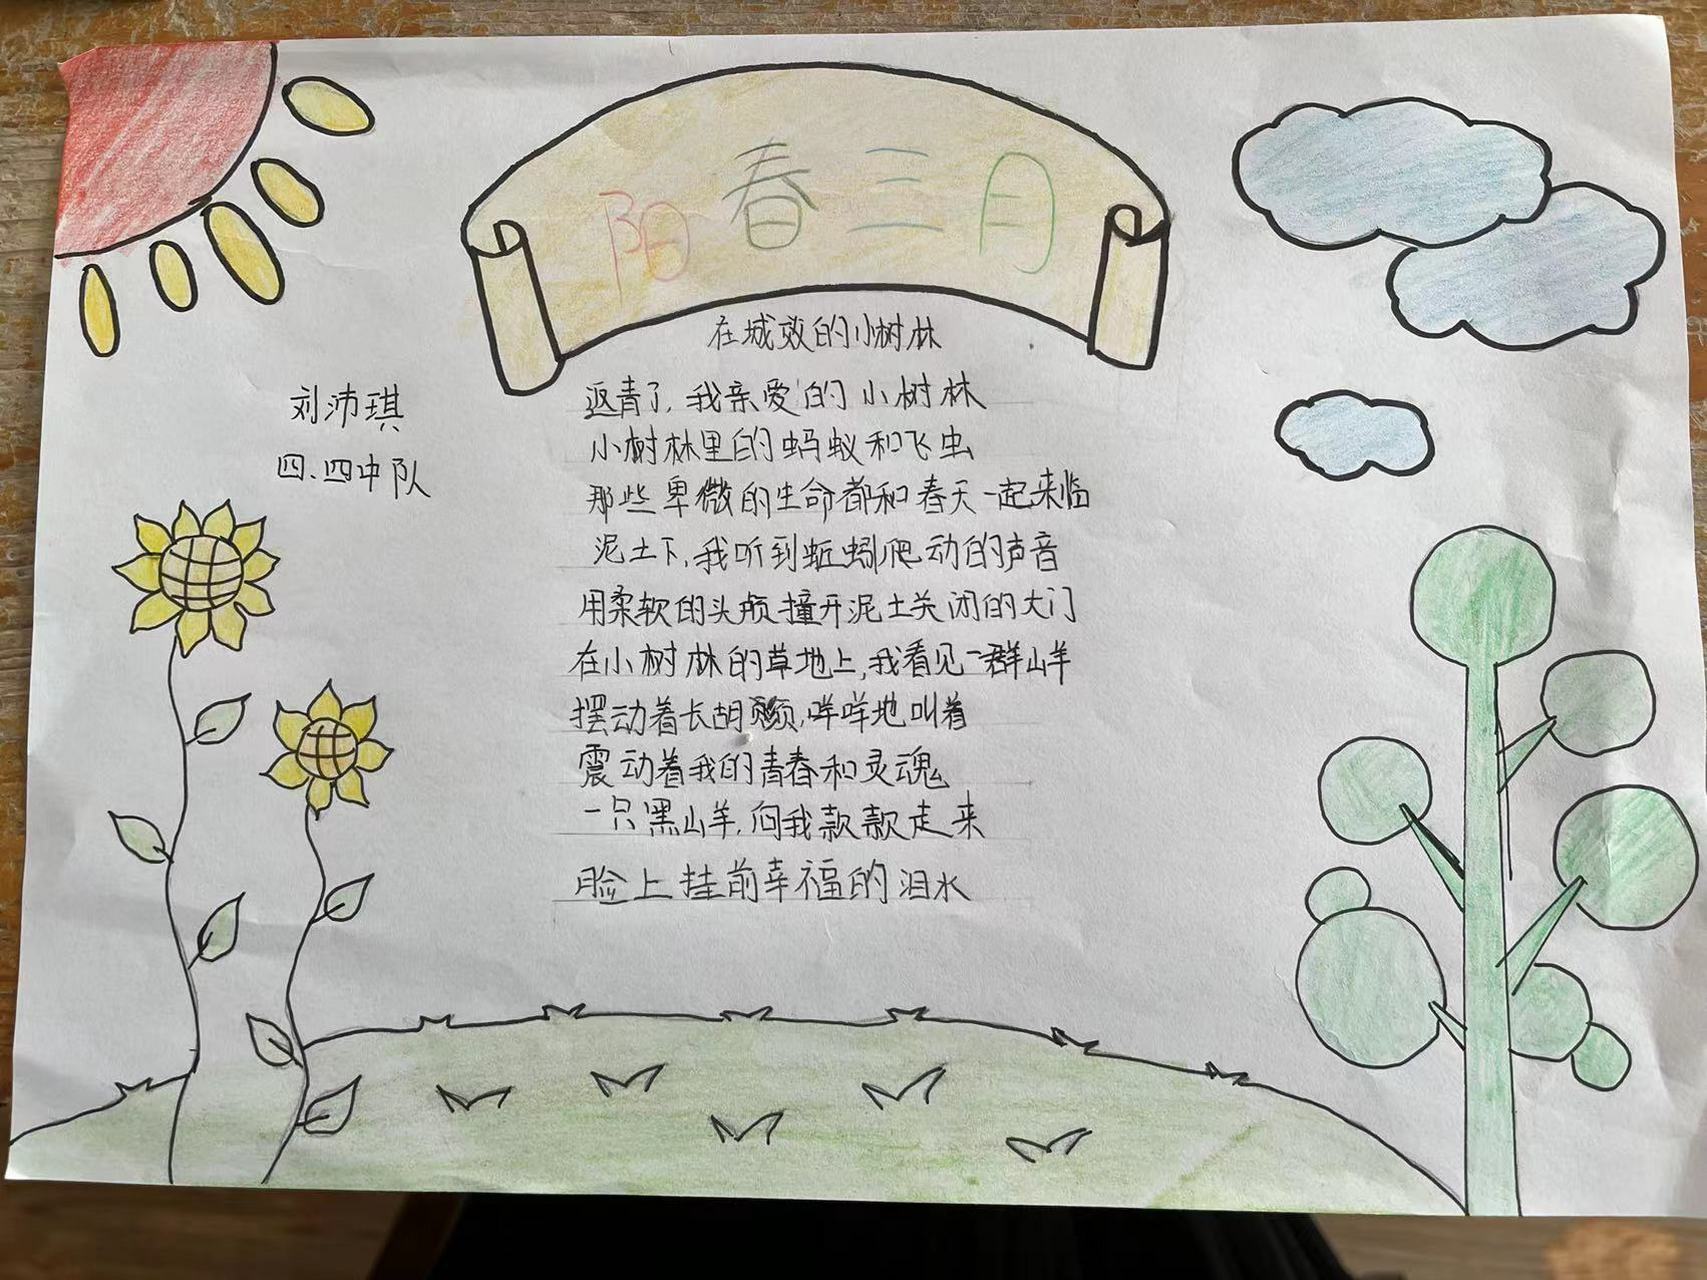 阳春三月
在城效的小树林
刘沛琪
四.四中队
返青了,我亲爱的小树林
小树林里的蚂蚁和飞虫
那些卑微的生命都和春天一起来临
泥土下,我听到蚯蚓爬动的声音
用柔软的头颅撞开泥土关闭的大门
在小树林的草地上,我看见一群山羊
摆动着长胡须,咩咩地叫着
震动着我的青春和灵魂
一只黑山羊,向我款款走来
脸上挂前幸福的泪水